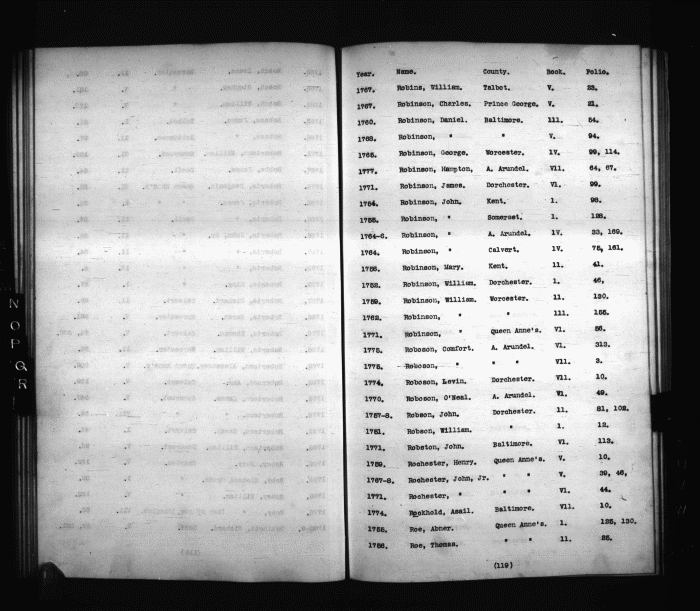 Year. Name. County. Book. Folio.
1767. Robins, William. Talbot. V. 23.
1767. Robinson, Charles. Prince George. V. 21.
1760. Robinson, Daniel. Baltimore. 111. 54.
1768. Robinson, " " V. 94.
1765. Robinson, George. Worcester. 1V. 99, 114.
1777. Robinson, Hampton, A. Arundel. V11. 64, 67.
1771. Robinson, James. Dorchester. V1. 99.
1754. Robinson, John. Kent. 1. 98.
1755. Robinson, " Somerset. 1. 128.
1764-6. Robinson, " A. Arundel. 1V. 33, 169.
1764. Robinson, " Calvert. 1V. 75, 161.
1756. Robinson, Mary. Kent. 11. 41.
1752. Robinson, William. Dorchester. 1. 46,
1759. Robinson, William. Worcester. 11. 130.
1762. Robinson, " " 111. 155.
1771. Robinson, " Queen Anne's. V1. 56.
1775. Roboson, Comfort. A. Arundel. V1. 313.
1775. Roboson, " " " V11. 3.
1774. Roboson, Levin. Dorchester. V11. 10.
1770. Roboson, O'Neal. A. Arundel. V1. 49.
1757-8. Robson, John. Dorchester. 11. 81, 102.
1751. Robson, William. " 1. 12.
1771. Robston, John. Baltimore. V1. 113.
1759. Rochester, Henry. Queen Anne's. V. 10.
1767-8. Rochester, John, Jr. " " V. 39, 48,
1771. Rochester, " " " V1. 44.
1774. Rockhold, Asail. Baltimore. V11. 10.
1755. Roe, Abner. Queen Anne's. 1. 125, 130.
1756. Roe, Thomas. " " 11. 25.
(119)
N
O
P
Q
R